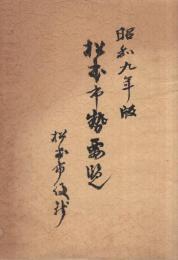 昭和九年版
松本市勢要覧
松本市役所